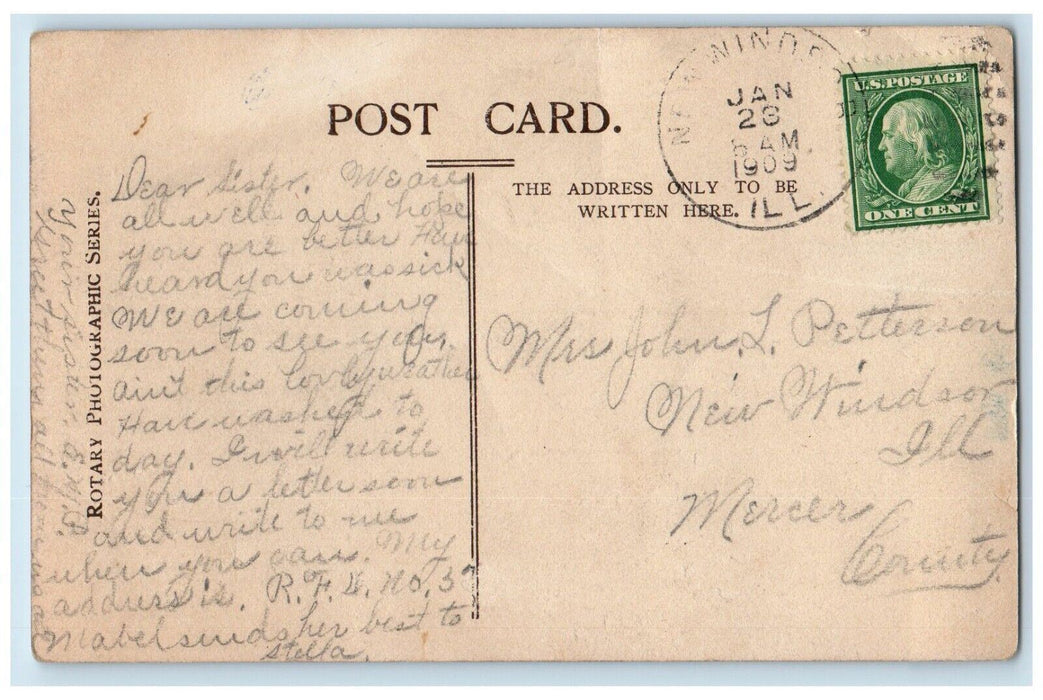 POST CARD.
NEW WINDSOR
JAN
28
AM
1909
ILL
U.S. POSTAGE
ONE CENT
THE ADDRESS ONLY TO BE
WRITTEN HERE.
ROTARY PHOTOGRAPHIC SERIES.
Dear Sister. We are
all well and hope
you are better Have
heard you was sick
We are coming
soon to see you.
aint this lovly weather
Have washed to
day. I will write
you a letter soon
and write to me
when you can. My
address is. R.F.D. No. 3
Mabel sends her best to
Stella.
Your Sister. E.
Mrs John. L. Petterson
New Windsor
Ill
Mercer
County.